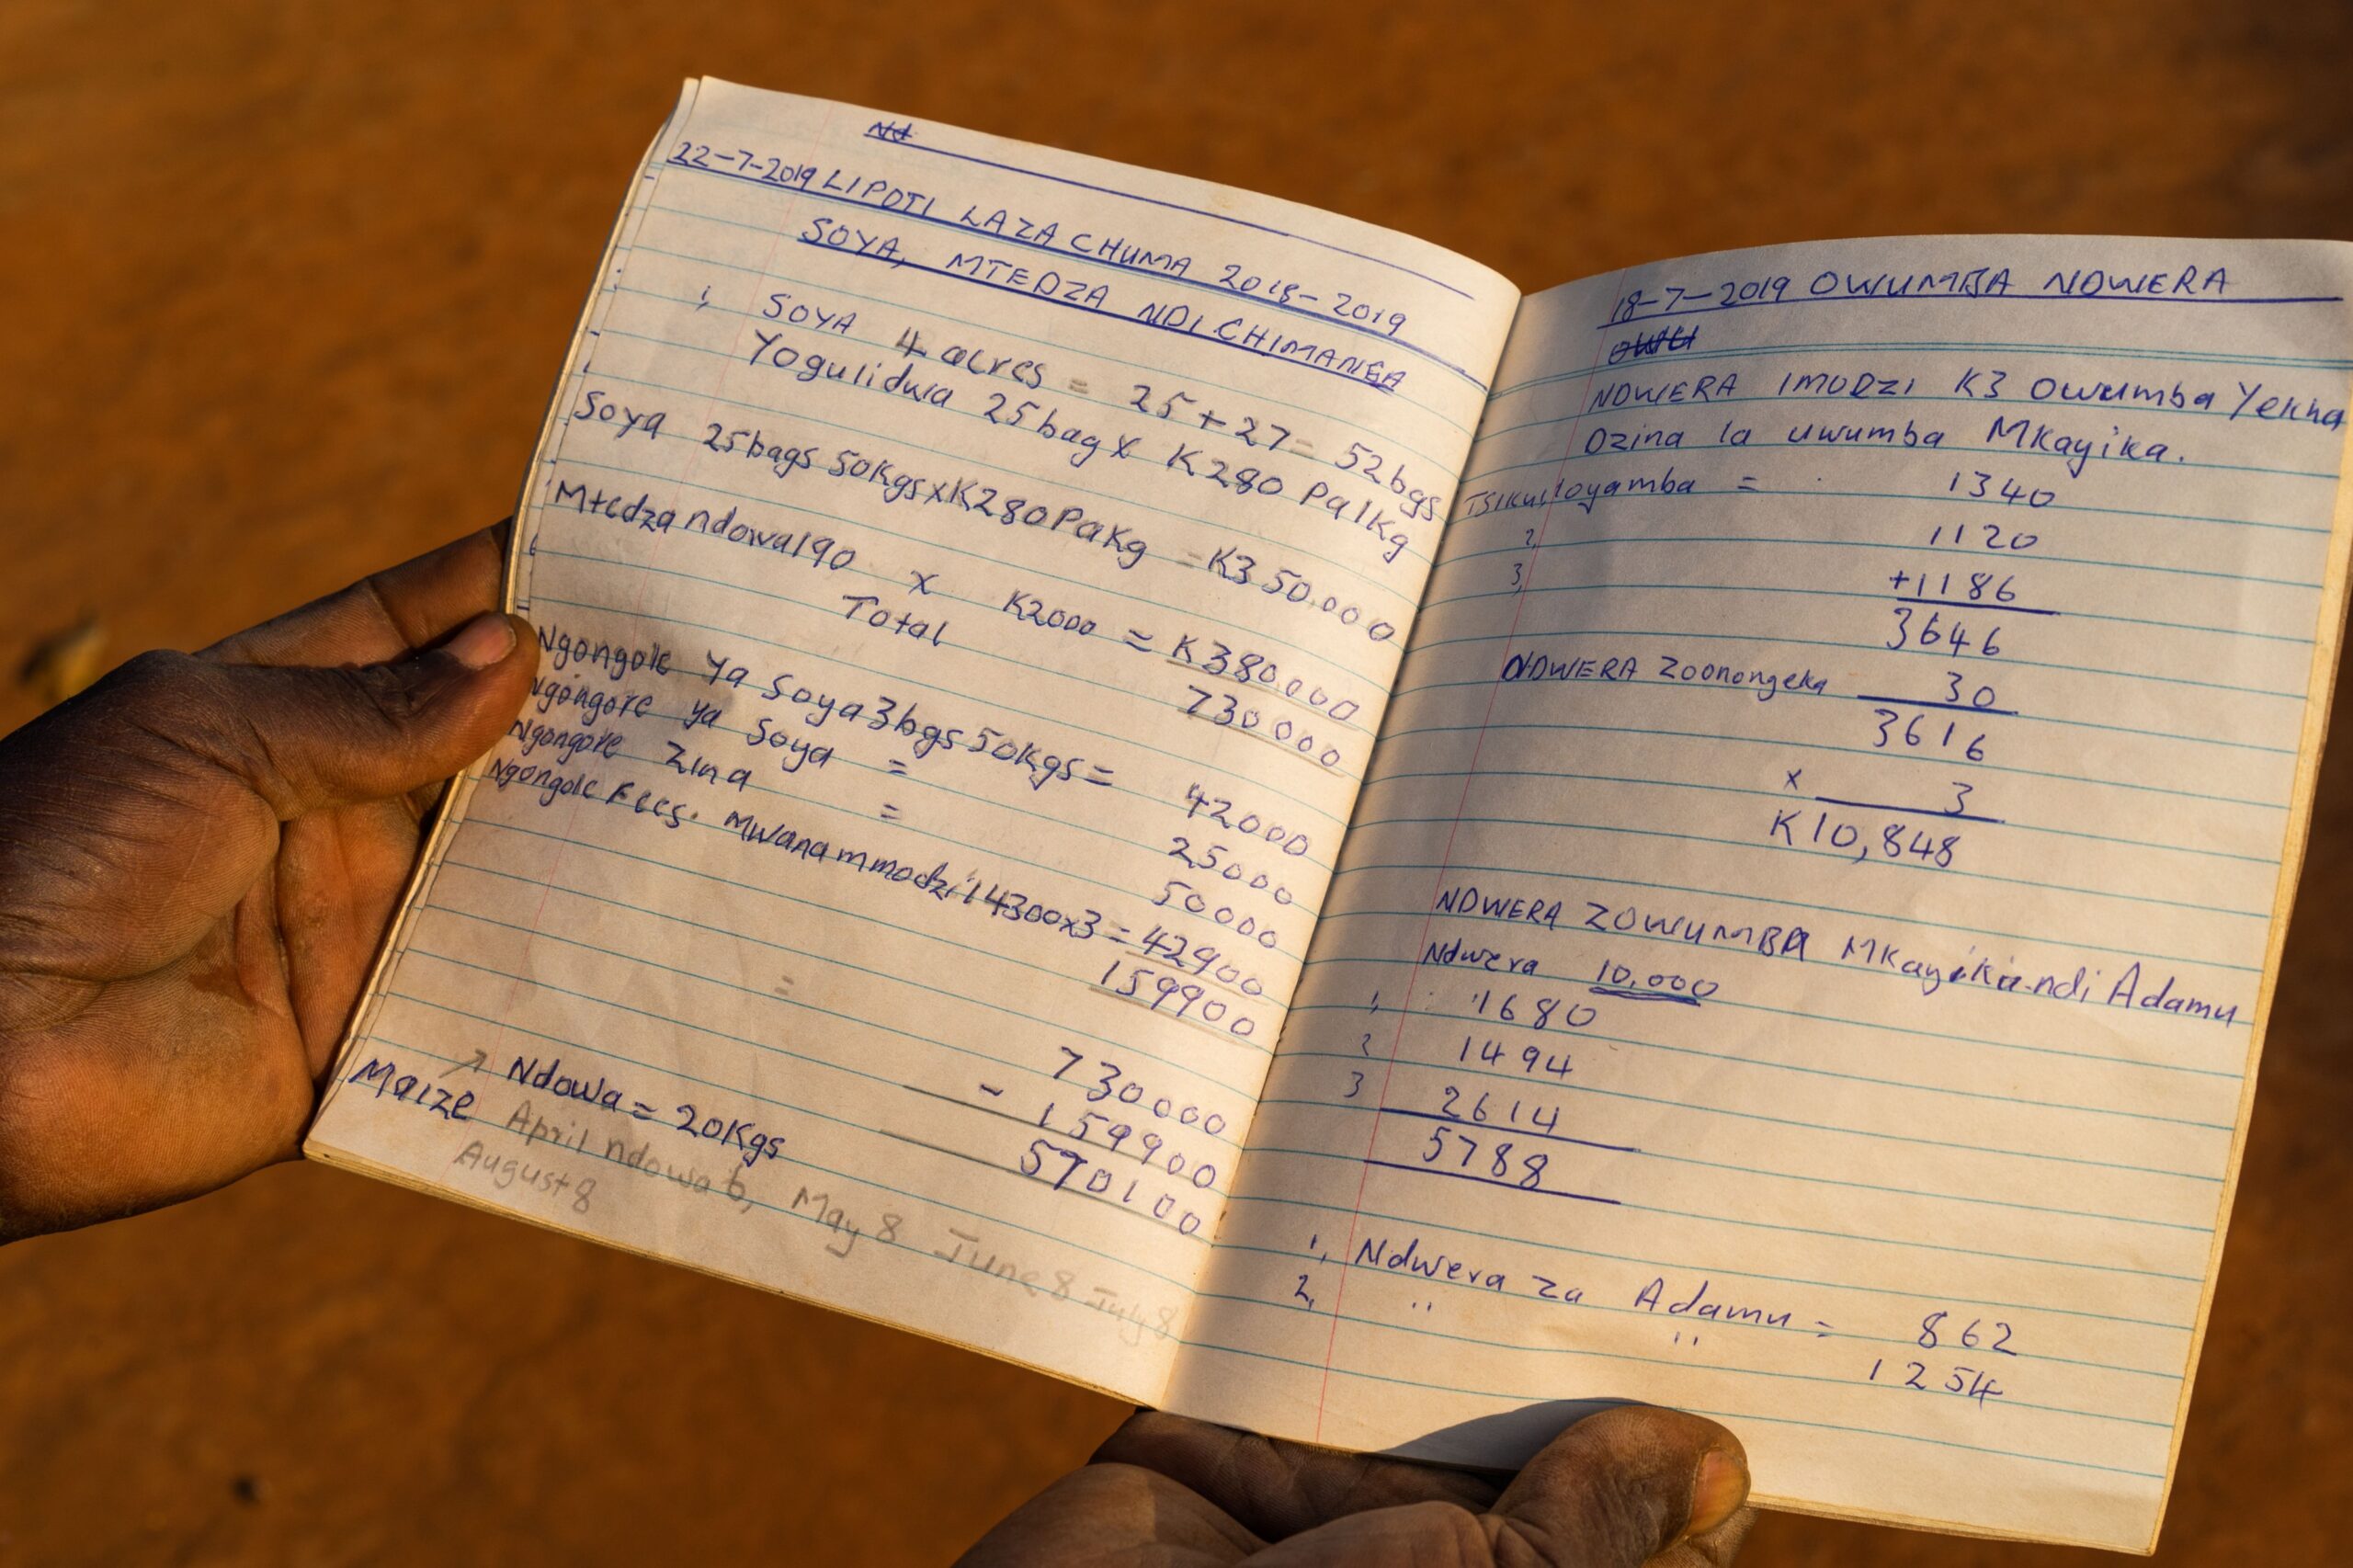 Nd
22-7-2019 LIPOTI LAZA CHUMA 2018-2019
SOYA, MTEDZA NDI CHIMANGA
1, SOYA 4 acres = 25+27= 52bgs
Yogulidwa 25bag x K280 Pa1Kg
Soya 25bags 50Kgs x K280 PaKg = K350.000
Mtedza ndowa 190 x K2000 = K380000
Total 730000
Ngongole Ya Soya 3bgs 50Kgs = 42000
Ngongore ya Soya = 25000
Ngongore Zina = 50000
Ngongole Fees. Mwana mmodzi 14300x3 = 42900
159900
=
730000
- 159900
570100
→ Ndowa = 20Kgs
Maize April ndowa 6, May 8 June 8 July 8
August 8
18-7-2019 OWUMBA NDWERA
OWU
NDWERA IMODZI K3 Owumba Yekha
Dzina la uwumba Mkayika.
Tsiku 1, loyamba = 1340
2, 1120
3, +1186
3646
NDWERA Zoonongeka 30
3616
x 3
K10,848
NDWERA ZOWUMBA Mkayika ndi Adamu
Ndwera 10.000
1, 1680
2 1494
3 2614
5788
1, Ndwera za Adamu = 862
2, " " 1254